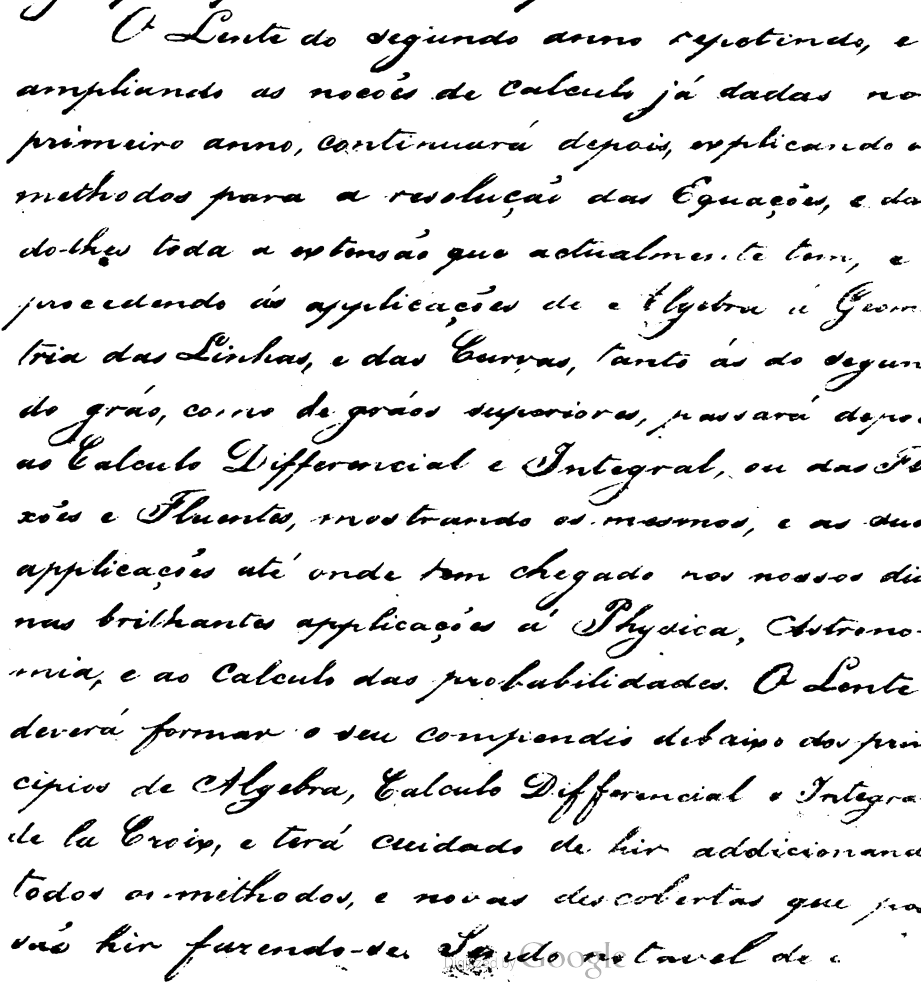 O Lente do segundo anno repetindo, e
ampliando as nocões de calculo já dadas no
primeiro anno, continuará depois, explicando o
methodos para a resolução das Equações, e da
do-lhes toda a extensão que actualmente tem, e
procedendo ás applicações de e Algebra á Geom
tria das Linhas, e das Curvas, tanto ás do segun
do gráo, como de gráos superiores, passará depo
ao Calculo Differencial e Integral, ou das Fl
xões e Fluentes, mostrando os mesmos, e as sua
applicações até onde tem chegado nos nossos dia
nas brilhantes applicações á Physica, Astrono-
mia, e ao Calculo das probabilidades. O Lente
deverá formar o seu compendio debaixo dos prin
cipios de Algebra, Calculo Differencial e Integra
de la Croix, e terá cuidado de hir addicionand
todos os methodos, e novas descobertas que po
são hir fazendo-se. Sendo notavel de
Digitized by Google